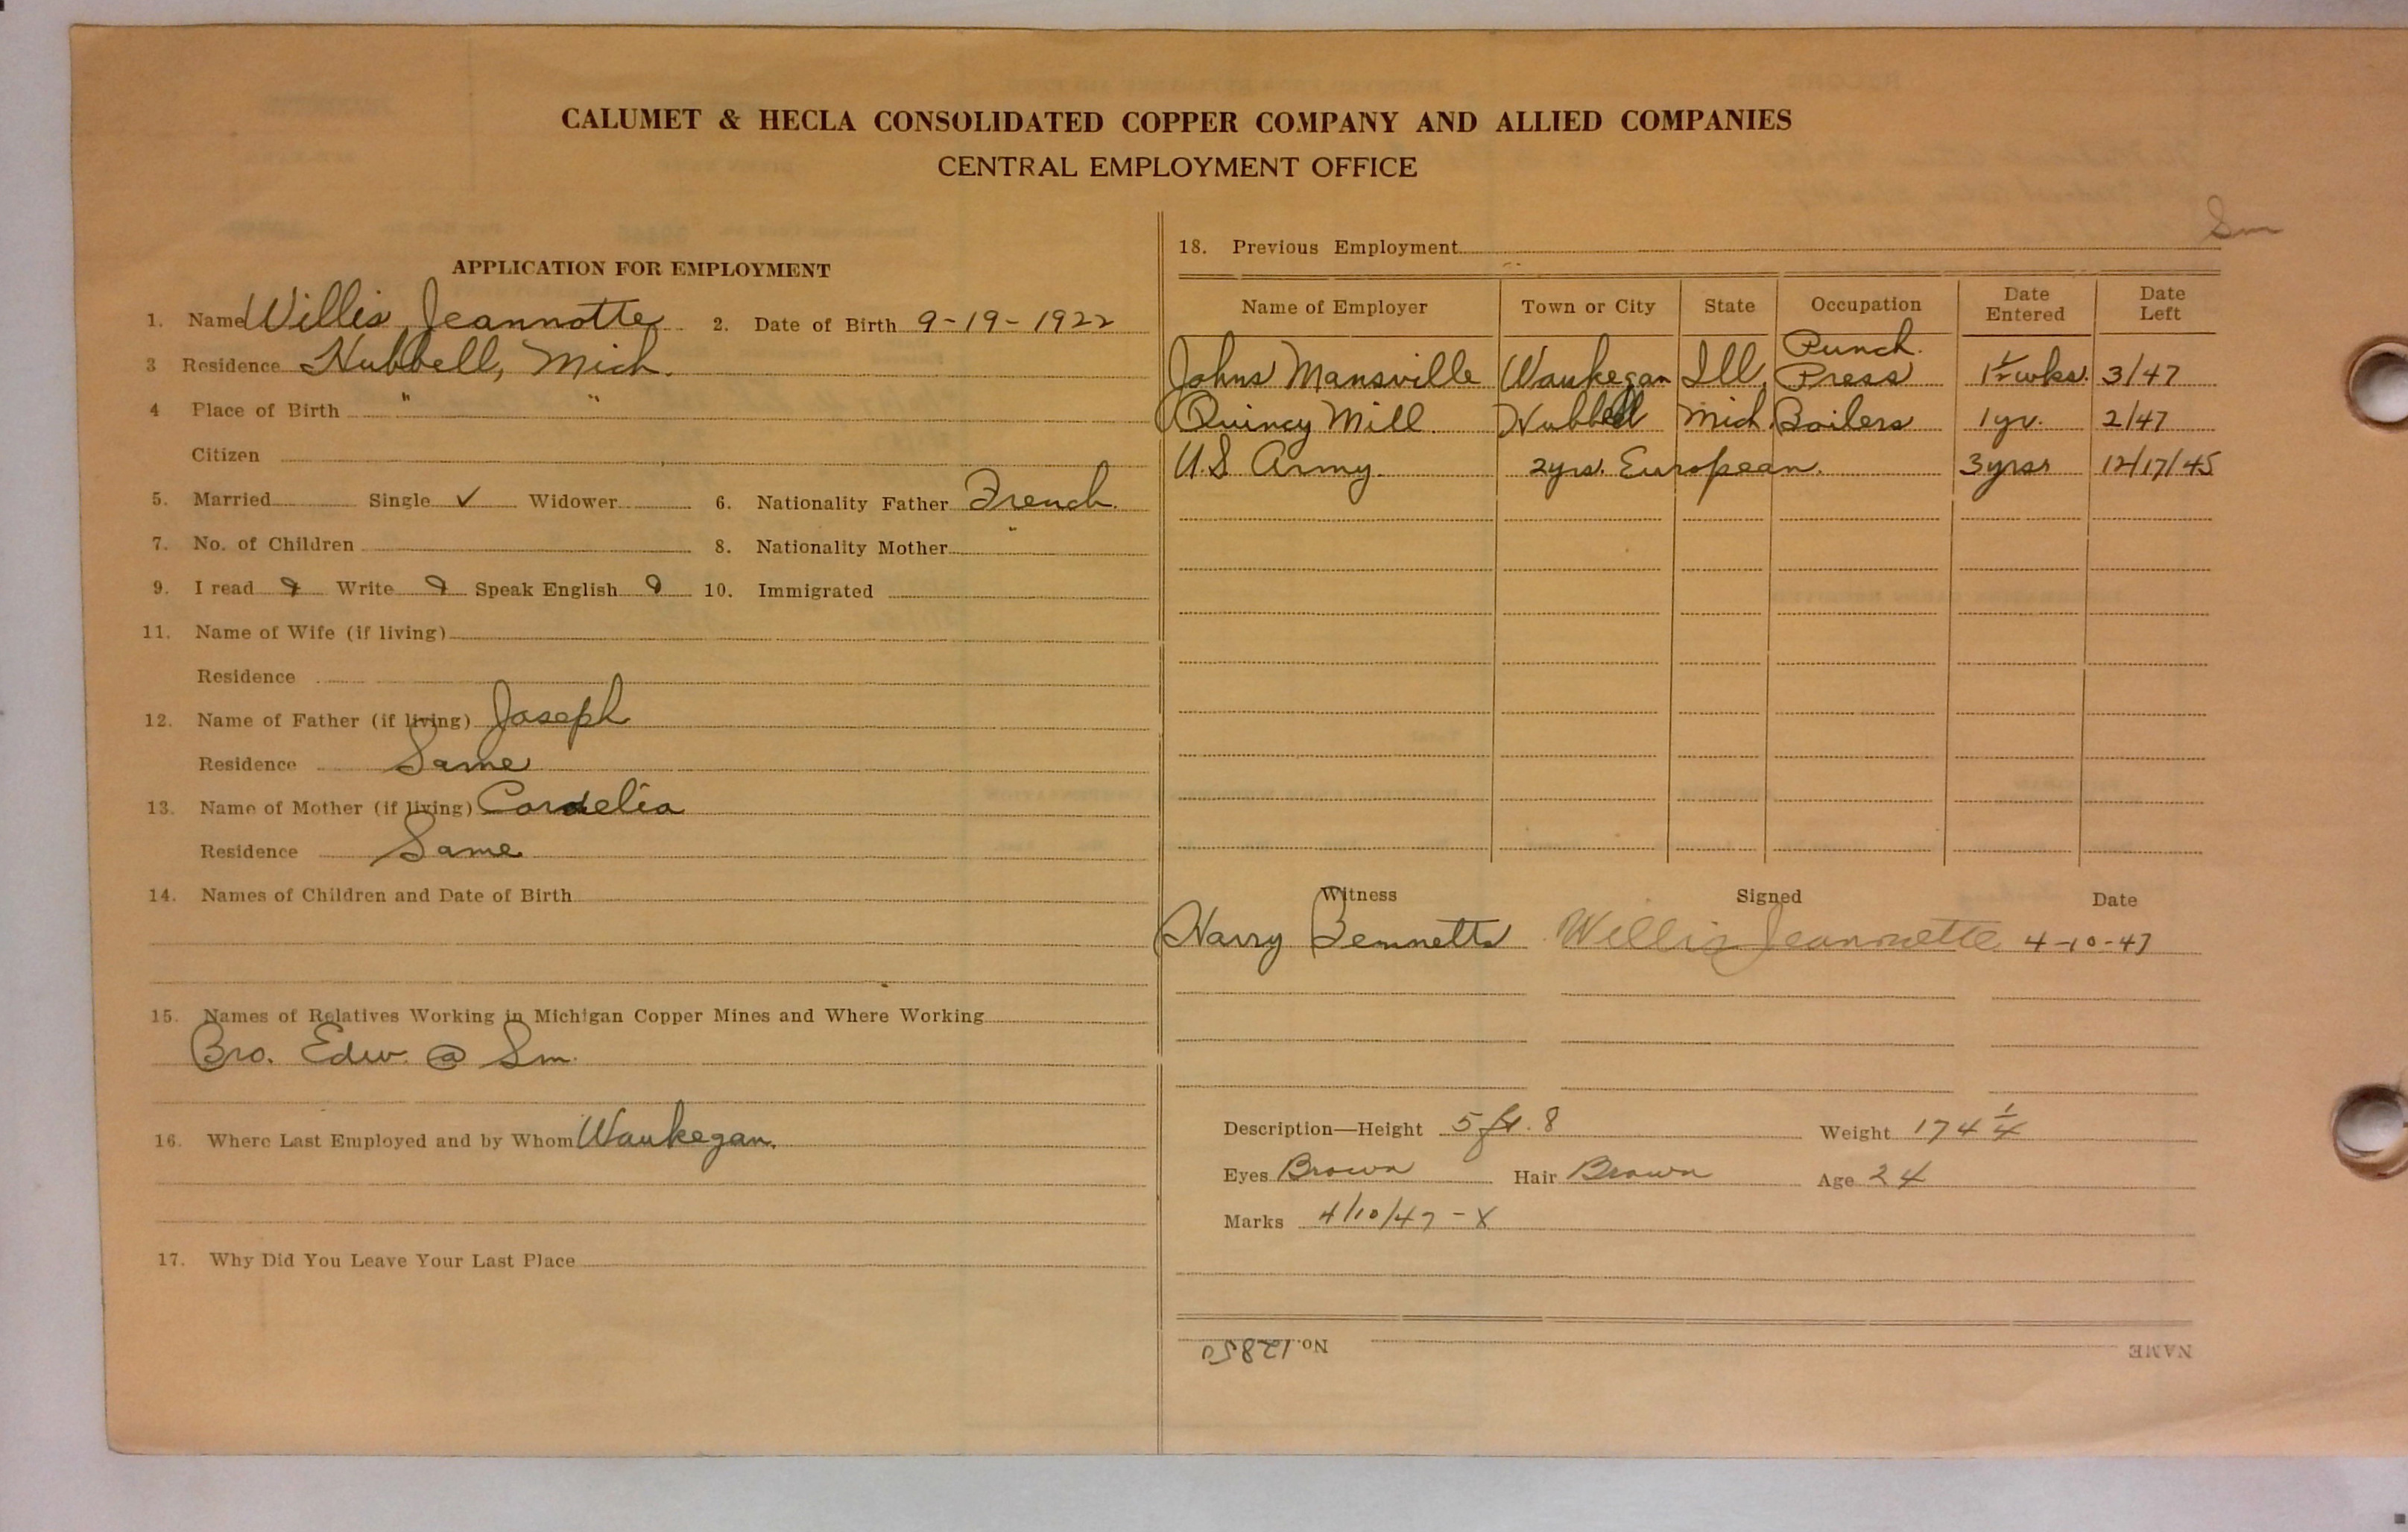 CALUMET & HECLA CONSOLIDATED COPPER COMPANY AND ALLIED COMPANIES
CENTRAL EMPLOYMENT OFFICE
Sm
APPLICATION FOR EMPLOYMENT
1. Name Willis Jeannotte 2. Date of Birth 9-19-1922
3 Residence Hubbell, Mich.
4 Place of Birth " "
Citizen
5. Married Single ✓ Widower 6. Nationality Father French
7. No. of Children 8. Nationality Mother "
9. I read Write Speak English 10. Immigrated
11. Name of Wife (if living)
Residence
12. Name of Father (if living) Joseph
Residence Same
13. Name of Mother (if living) Cordelia
Residence Same
14. Names of Children and Date of Birth
15. Names of Relatives Working in Michigan Copper Mines and Where Working
Bro. Edw. @ Sm.
16. Where Last Employed and by Whom Waukegan.
17. Why Did You Leave Your Last Place
18. Previous Employment
Name of Employer Town or City State Occupation Date Entered Date Left
Johns Mansville Waukegan Ill. Punch Press 1 1/2 wks. 3/47
Quincy Mill Hubbell Mich. Boilers 1 yr. 2/47
U.S. Army. 2 yrs. European. 3 yrs 12/17/45
Witness Signed Date
Harry Bennetts Willis Jeannotte 4-10-47
Description—Height 5 ft. 8 Weight 174 1/4
Eyes Brown Hair Brown Age 24
Marks 4/10/47 - X
No. 12850 NAME